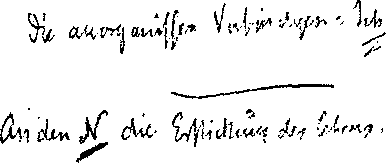 Die anorganischen Verbindungen = Ich
An den N die Erstickung des Lebens.